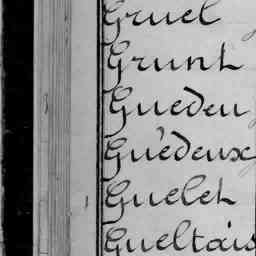 Gruel
Grunt
Guedeu
Guédeux
Guelet
Gueltais